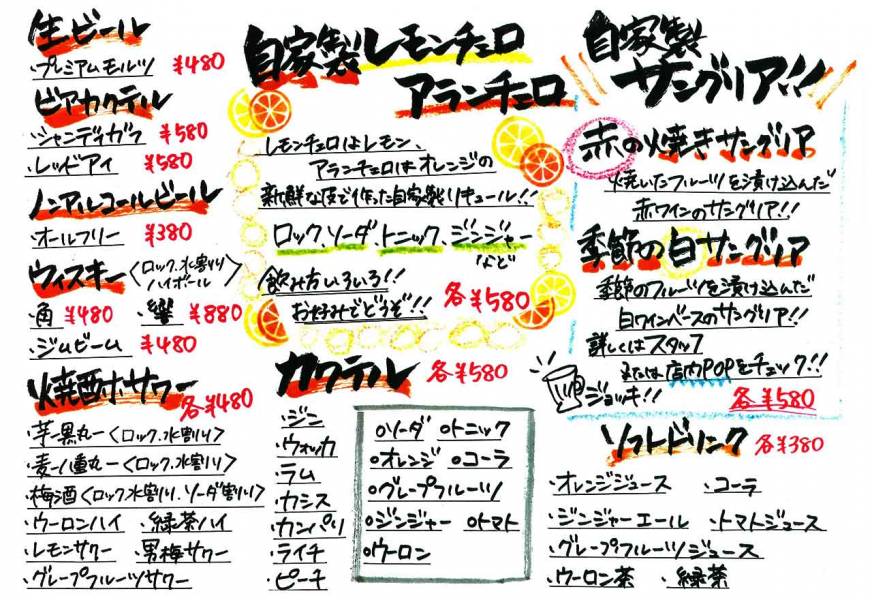 生ビール
・プレミアムモルツ ¥480
ビアカクテル
・シャンディガフ ¥580
・レッドアイ ¥580
ノンアルコールビール
・オールフリー ¥380
ウィスキー〈ロック、水割り ハイボール〉
・角 ¥480 ・響 ¥880
・ジムビーム ¥480
焼酎・サワー 各¥480
・芋-黒丸-〈ロック、水割り〉
・麦-八重丸-〈ロック、水割り〉
・梅酒〈ロック、水割り、ソーダ割り〉
・ウーロンハイ ・緑茶ハイ
・レモンサワー ・男梅サワー
・グレープフルーツサワー
自家製レモンチェロ
アランチェロ
レモンチェロはレモン、
アランチェロはオレンジの
新鮮な皮で作った自家製リキュール!!
ロック、ソーダ、トニック、ジンジャー
など
飲み方いろいろ!!
お好みでどうぞ!! 各¥580
カクテル 各¥580
・ジン
・ウォッカ
・ラム
・カシス
・カンパリ
・ライチ
・ピーチ
○ソーダ ○トニック
○オレンジ ○コーラ
○グレープフルーツ
○ジンジャー ○トマト
○ウーロン
自家製
サングリア!!
赤の焼きサングリア
焼いたフルーツを漬け込んだ
赤ワインのサングリア!!
季節の白サングリア
季節のフルーツを漬け込んだ
白ワインベースのサングリア!!
詳しくはスタッフ
または店内POPをチェック!!
ジョッキ!! 各¥580
ソフトドリンク 各¥380
・オレンジジュース ・コーラ
・ジンジャーエール ・トマトジュース
・グレープフルーツジュース
・ウーロン茶 ・緑茶